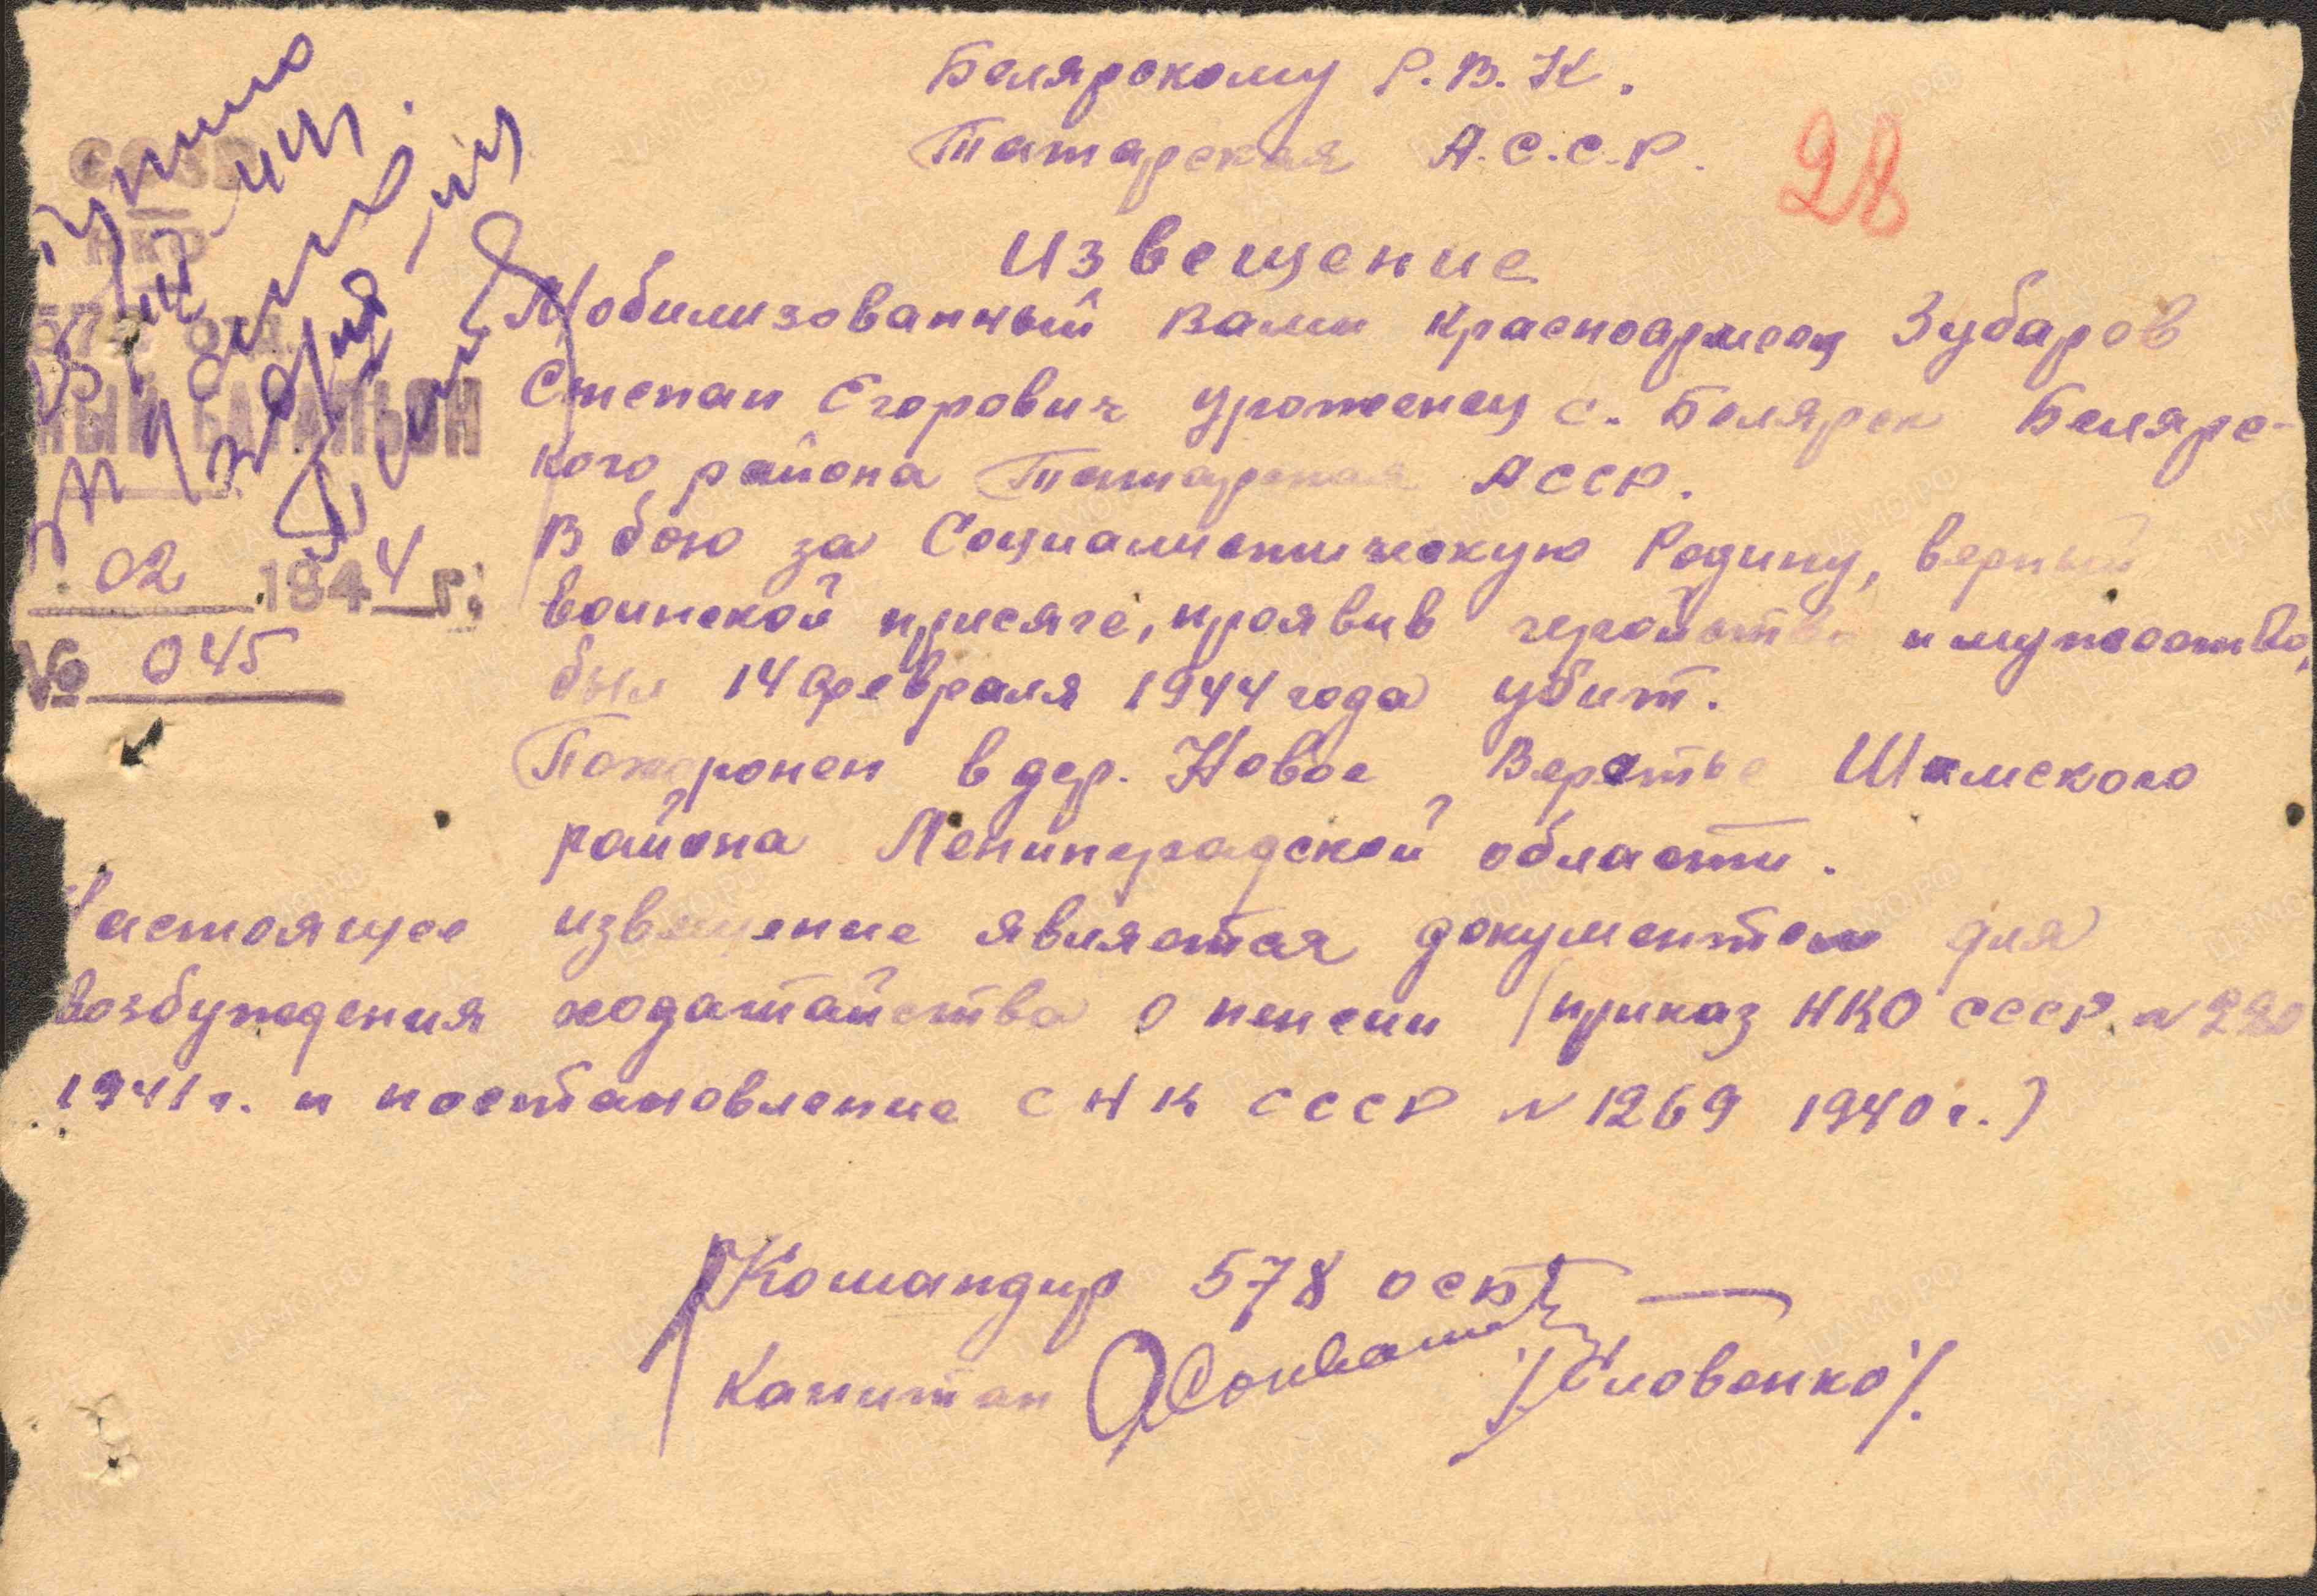 Белярскому Р.В.К.
Татарская А.С.С.Р.
28
Извещение
СССР
НКО
578 отд.
НЫЙ БАТАЛЬОН
02 1944 г.
№ 045
Мобилизованный Вами красноармеец Зубаров
Степан Егорович уроженец с. Белярск Белярс-
кого района Татарская АССР.
В бою за Социалистическую Родину, верный
воинской присяге, проявив геройство и мужество,
был 14 февраля 1944 года убит.
Похоронен в дер. Новое Веретье Шимского
района Ленинградской области.
астоящее извещение является документом для
возбуждения ходатайства о пенсии (приказ НКО СССР N 220
1941 г. и постановление СНК СССР N 1269 1940 г.)
Командир 578 осб
Капитан /Словенко/.